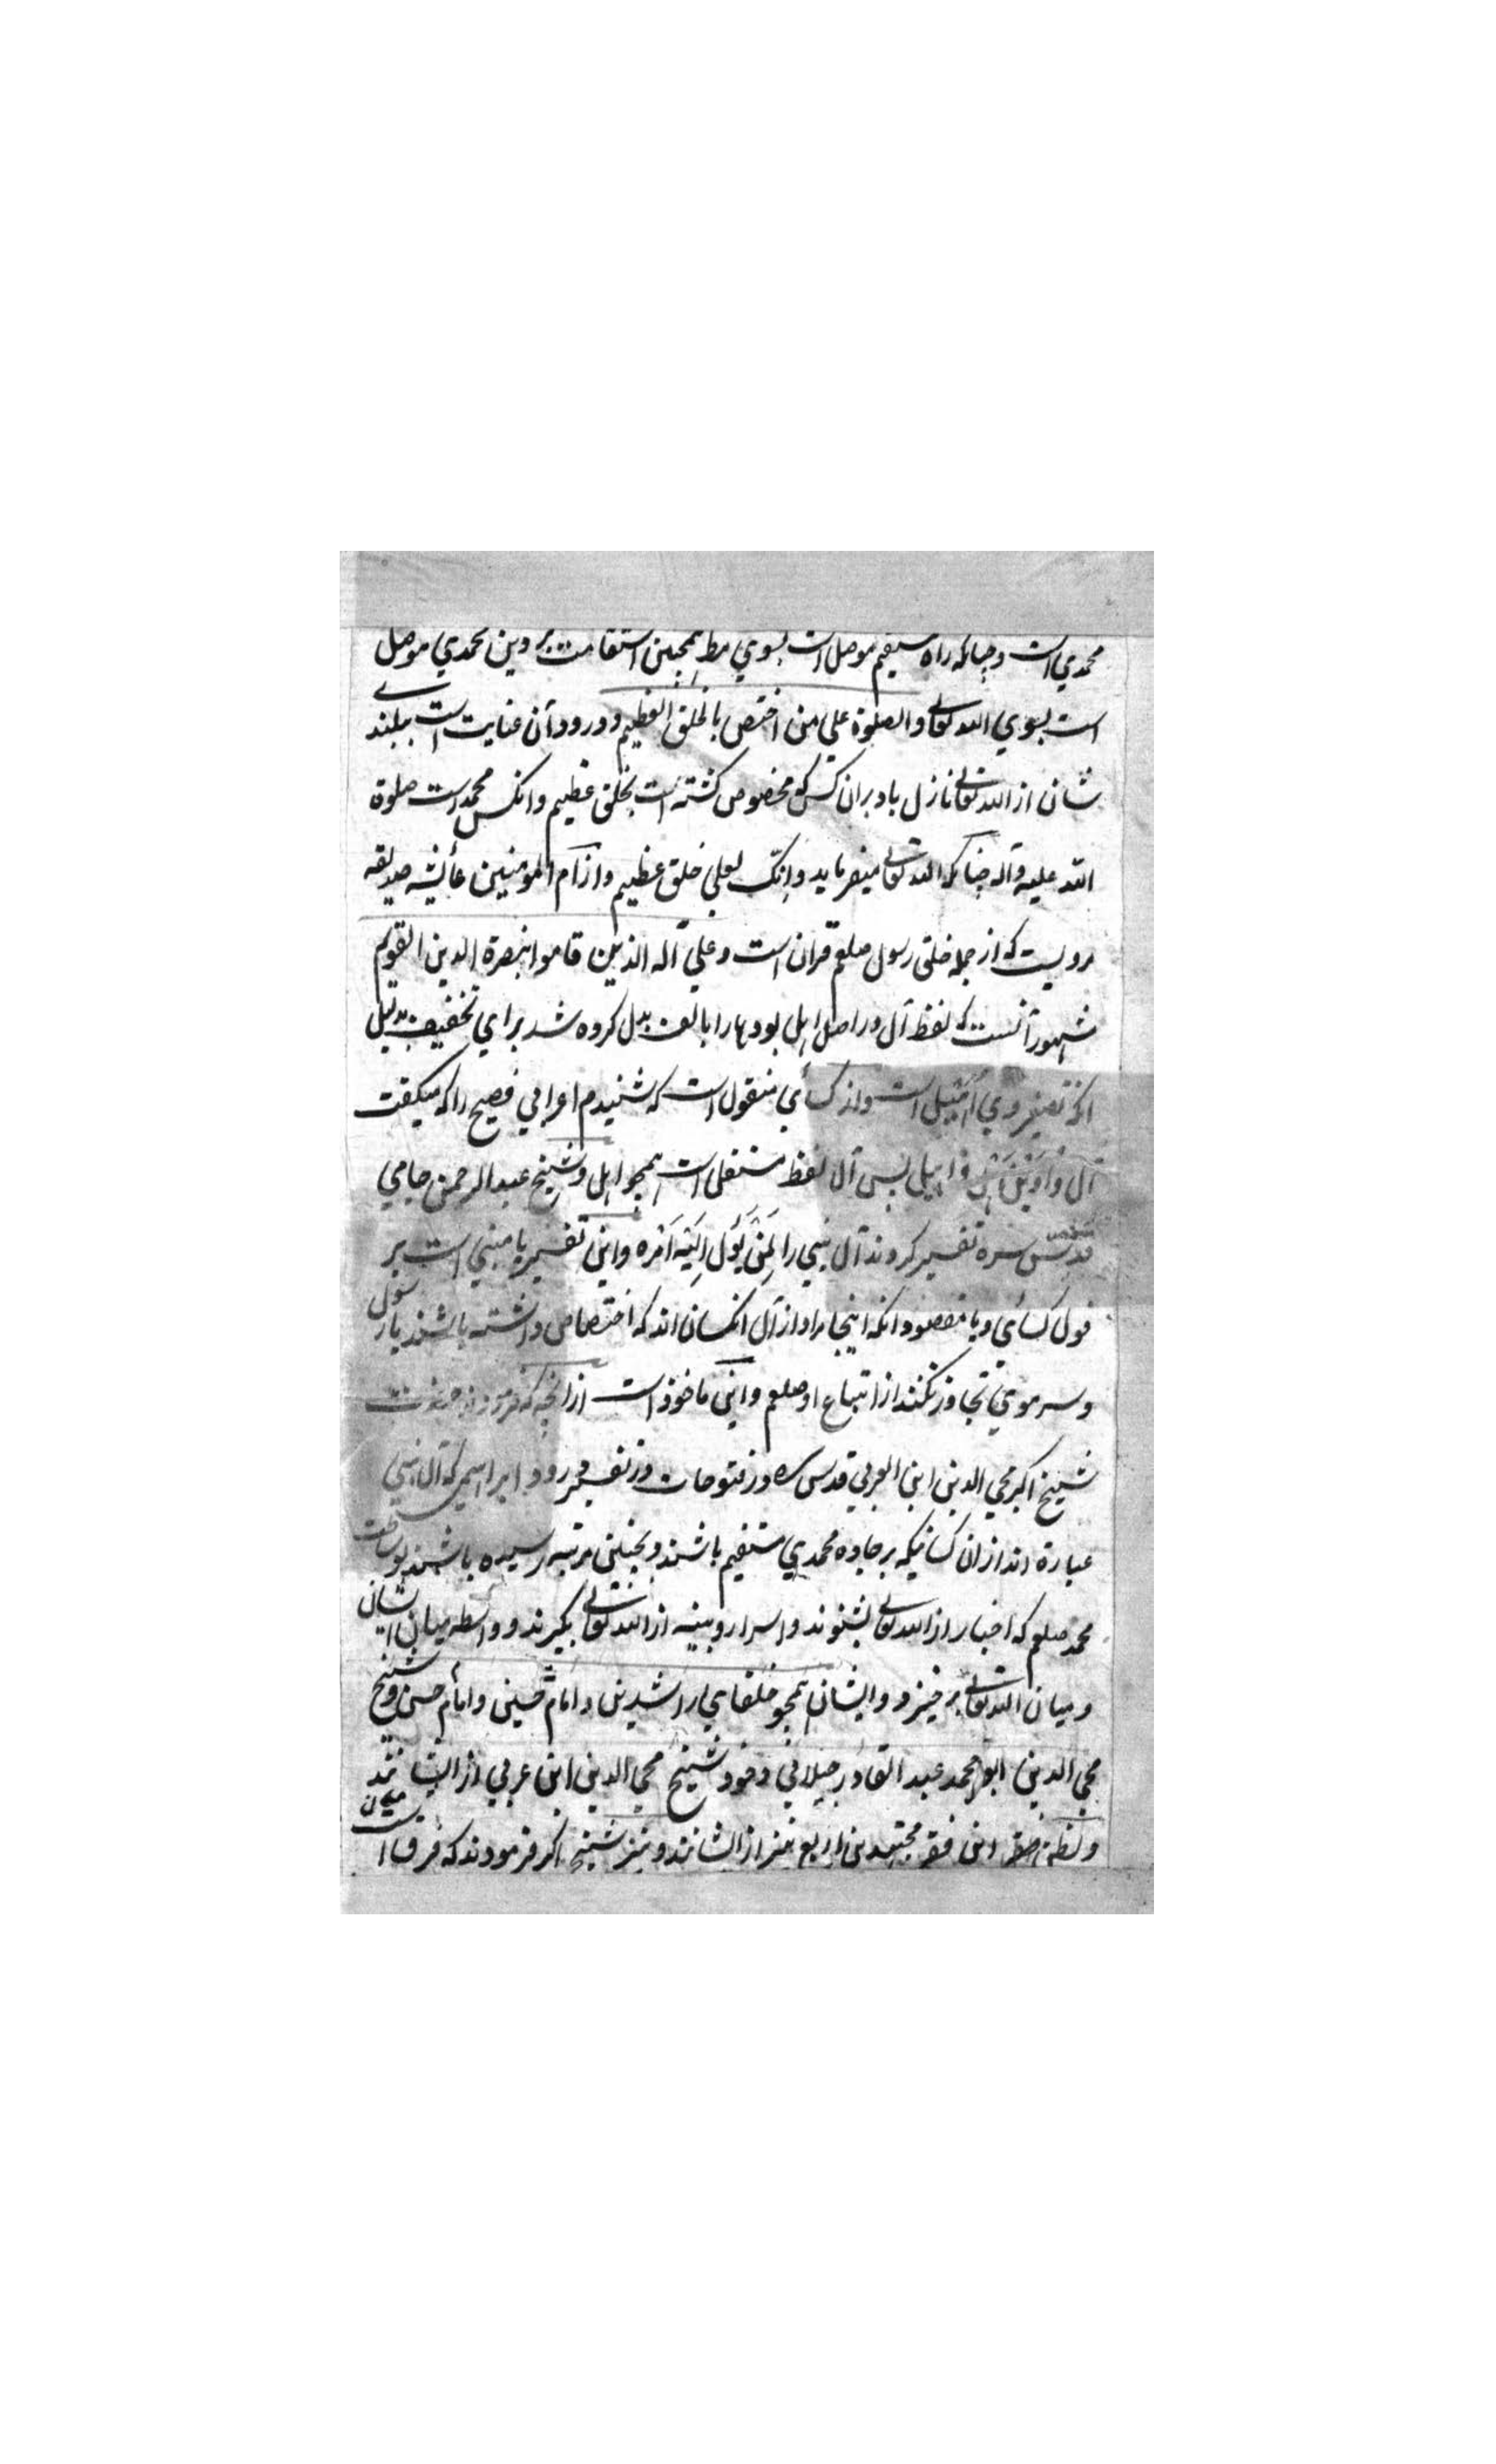 محمدي است و چنانکه راه مستقیم موصل است بسوي مط همچنین استقامت بر دین محمدي موصل
است بسوي الله تعالی والصلوة علي من اختص بالخلق العظیم و درود آن عنایت است ببلندے
شان از الله تعالی نازل باد بران کس که مخصوص کشته است بخلق عظیم وانکس محمد است صلوة
الله علیه وآله چنانکه الله تعالی میفرماید وانک لعلي خلق عظیم واز ام المومنین عایشه صدیقه
مرویست که از جمله خلق رسول صلعم قران است وعلي آله الذین قاموا بنصرة الدین القویم
مشهور آنست که لفظ آل در اصل اهل بود ها را بالف بدل کرده شد براي تخفیف بدلیل
انکه تصغیر وي اهیل است واز کسائي منقول است که شنیدم اعرابي فصیح را که میکفت
آل واویل اهل واهیل پس آل لفظ مستقل است همچو اهل وشیخ عبد الرحمن جامي
قدس سره تفسیر کردند آل نبي را لمن یؤل الیه امره واین تفسیر یا مبني است بر
قول کسائي ویا مقصود انکه اینجا مراد از آل انکسان اند که اختصاص داشته باشند با رسول
وسر موي تجاوز نکنند از اتباع او صلعم واین ماخوذ است ازانچه که فرمودند حضرت
شیخ اکبر محي الدین ابن العربي قدس سره در فتوحات در تفسیر درود ابراهیمي که آل نبي
عبارة اند از ان کسانیکه بر جاده محمدي مستقیم باشند وبچنین مرتبه رسیده باشند بوساطت
محمد صلعم که اخبار از الله تعالی بشنوند واسرار دینیه از الله تعالی بکیرند وواسطه میان ایشان
ومیان الله تعالی بر خیزد وایشان همچو خلفاي راشدین وامام حسین وامام حسن وشیخ
محي الدین ابو محمد عبد القادر جیلاني وخود شیخ محي الدین ابن عربي از ایشانند
این فقیر مجتهدین اربع نیز از ایشانند ونیز شیخ اکبر فرمودند که فرق است میان